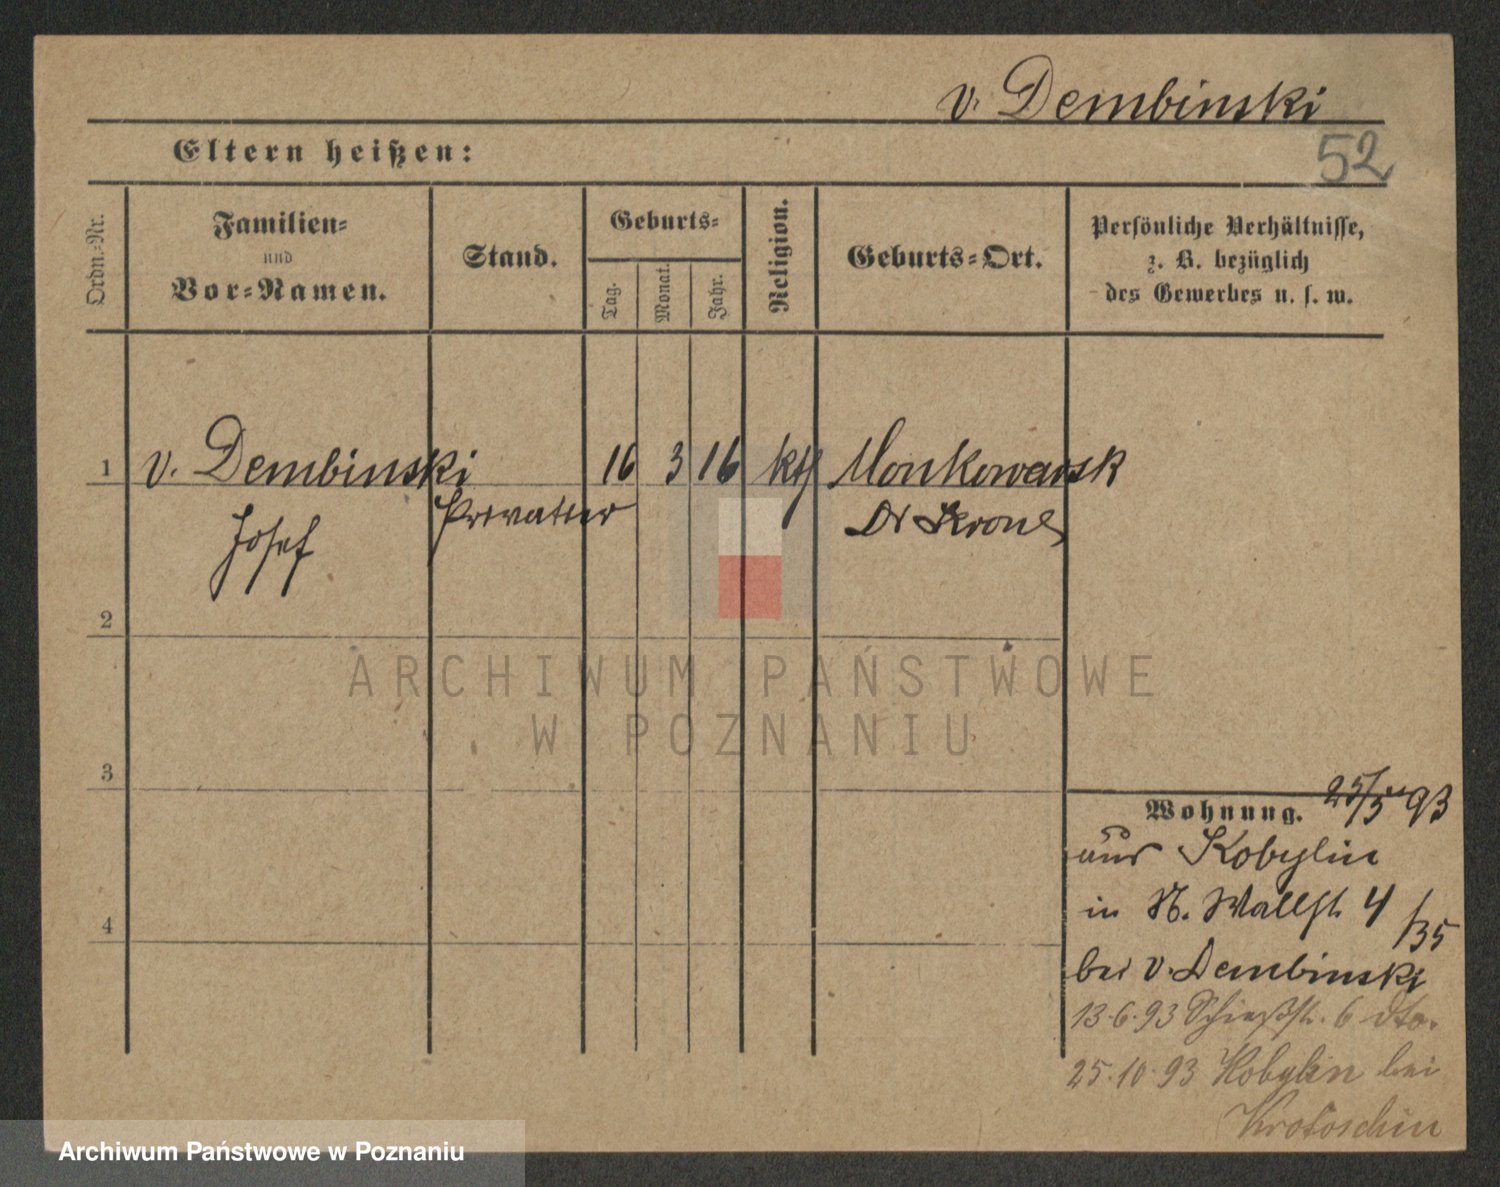 v. Dembinski
52
Eltern heißen:
Ordn.-Nr.
Familien-
und
Vor-Namen.
Stand.
Geburts-
Tag.
Monat.
Jahr.
Religion.
Geburts-Ort.
Persönliche Verhältnisse,
z. B. bezüglich
des Gewerbes u. s. w.
1 v. Dembinski 16 3 16 kth Monkowarsk
Josef Privatier Dt Krone
2
ARCHIWUM PAŃSTWOWE
W POZNANIU
3
Wohnung. 25/5 93
aus Kobylin
in N. Wallst. 4 /35
bei v. Dembinski
13.6.93 Schießst. 6 dto.
25.10.93 Kobylin bei
Krotoschin
4
Archiwum Państwowe w Poznaniu